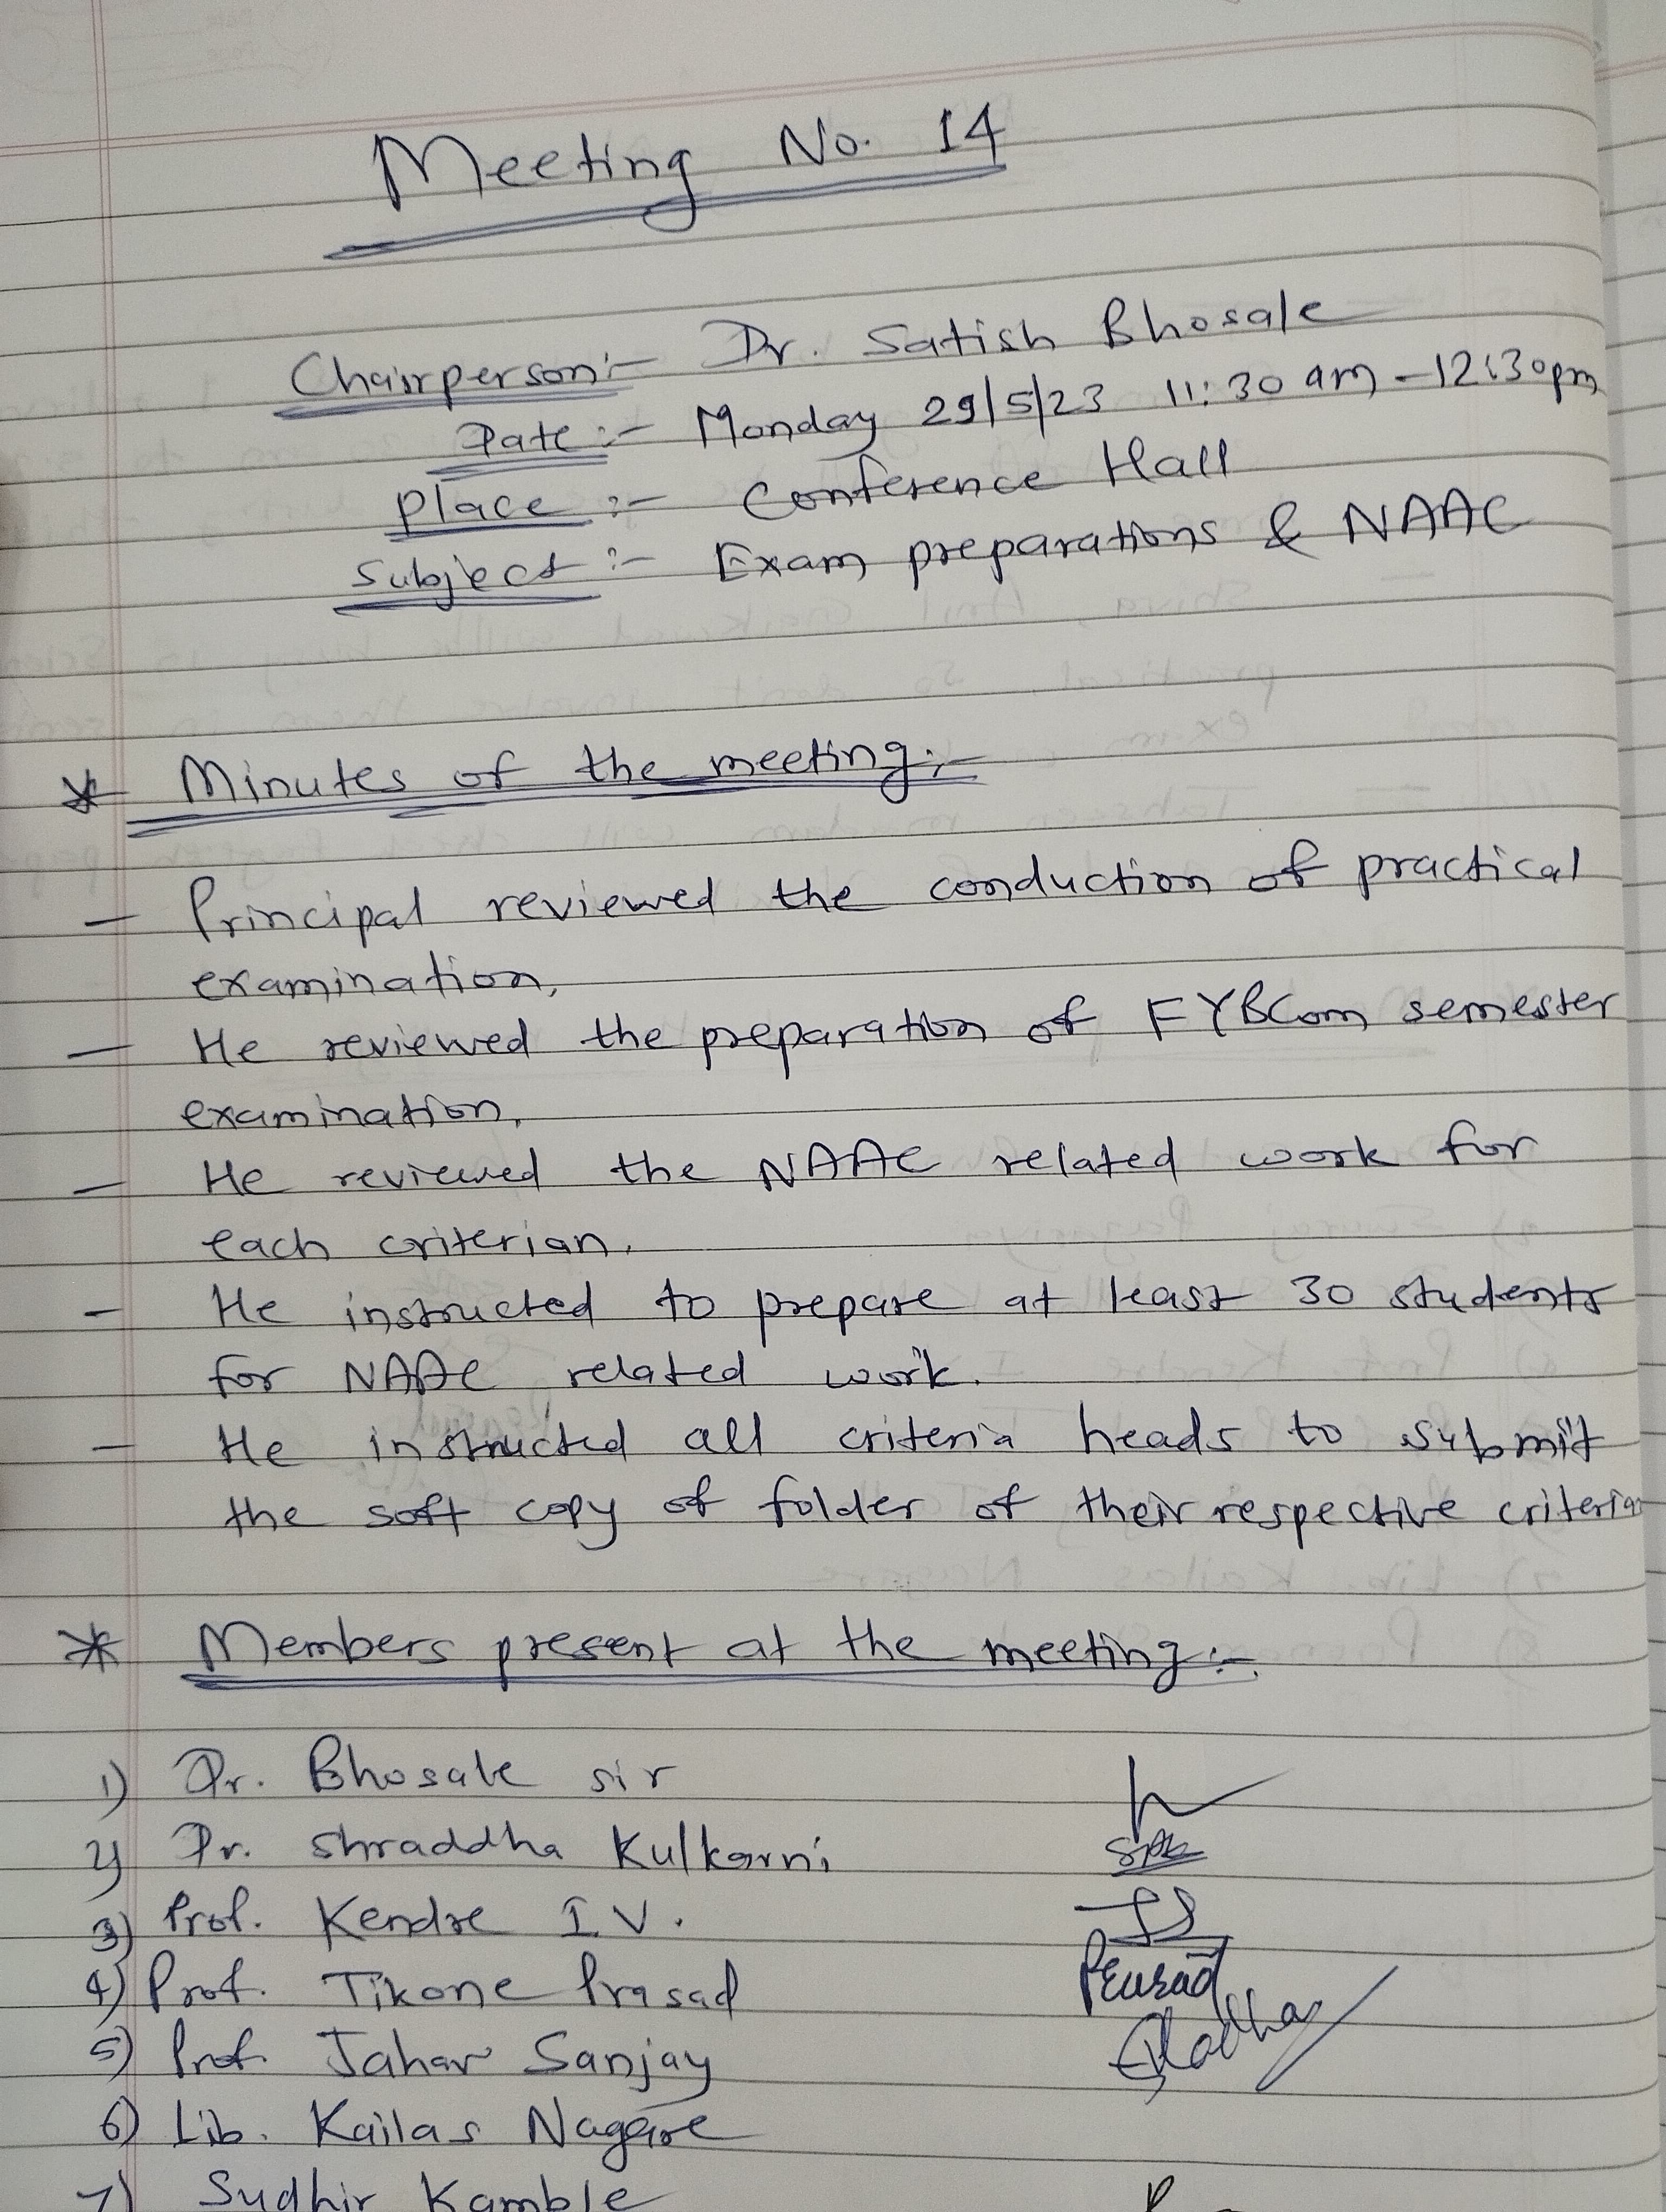 Meeting No. 14
Chairperson:- Dr. Satish Bhosale
Date:- Monday 29/5/23 11:30 am - 12:30pm
Place :- Conference Hall
Subject :- Exam preparations & NAAC
* Minutes of the meeting:-
- Principal reviewed the conduction of practical
examination,
- He reviewed the preparation of FYBCom semester
examination,
- He reviewed the NAAC related work for
each criterian.
- He instructed to prepare at least 30 students
for NAAC related work.
- He instructed all criteria heads to submit
the soft copy of folder of their respective criteria
* Members present at the meeting:-
1) Dr. Bhosale sir
2) Dr. Shraddha Kulkarni
3) Prof. Kendre I V.
4) Prof. Tikone Prasad
5) Prof. Jahar Sanjay
6) Lib. Kailas Nagare
7) Sudhir Kamble